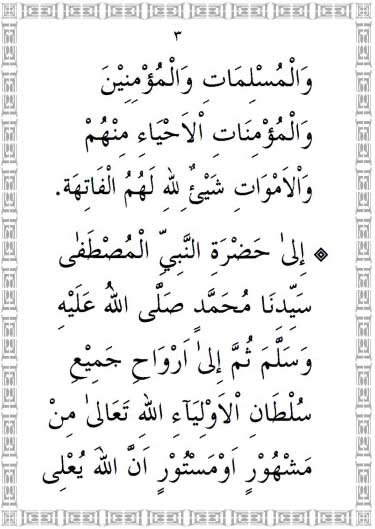 ٣
وَالْمُسْلِمَاتِ وَالْمُؤْمِنِيْنَ
وَالْمُؤْمِنَاتِ اْلاَحْيَاءِ مِنْهُمْ
وَاْلاَمْوَاتِ شَيْئٌ لِلّٰهِ لَهُمُ الْفَاتِهَة.
إِلىٰ حَضْرَةِ النَّبِيِّ الْمُصْطَفٰى
سَيِّدِنَا مُحَمَّدٍ صَلَّى اللهُ عَلَيْهِ
وَسَلَّمَ ثُمَّ إِلىٰ اَرْوَاحِ جَمِيْعِ
سُلْطَانِ اْلاَوْلِيَآءِ اللهِ تَعَالىٰ مِنْ
مَشْهُوْرٍ اَوْمَسْتُوْرٍ اَنَّ اللهَ يُعْلِى